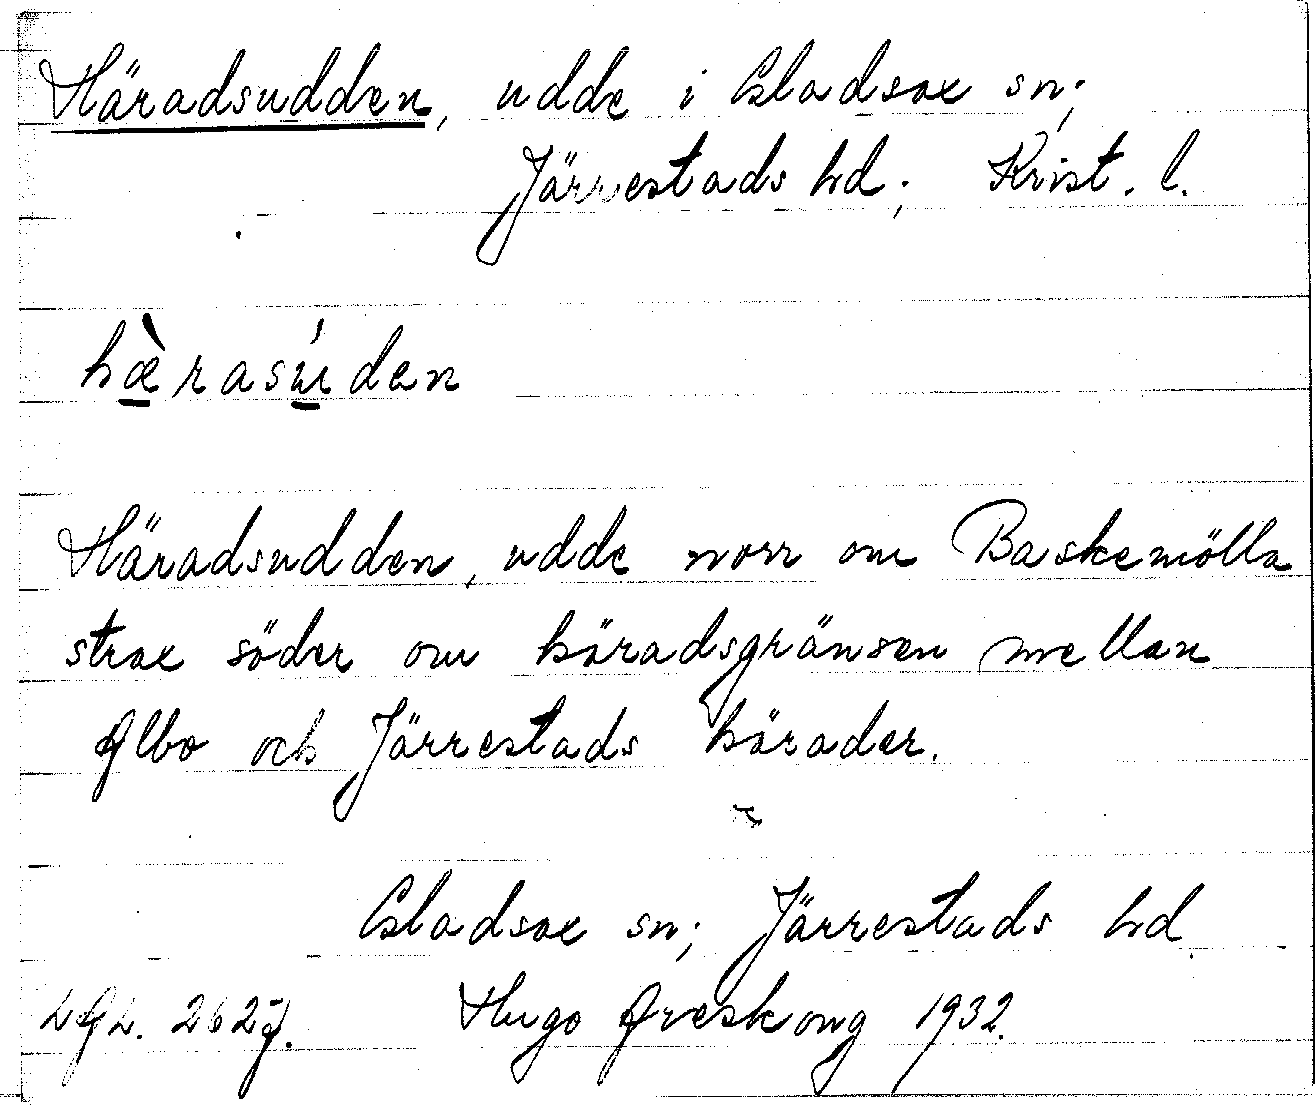 Häradsudden, udde i Gladsax sn;
Järrestads hd; Krist. l.
hæ̀rasúden
Häradsudden, udde norr om Baskemölla
strax söder om häradsgränsen mellan
Albo och Järrestads härader.
Gladsax sn; Järrestads hd.
LAL. 2627.
Hugo Areskoug 1932.